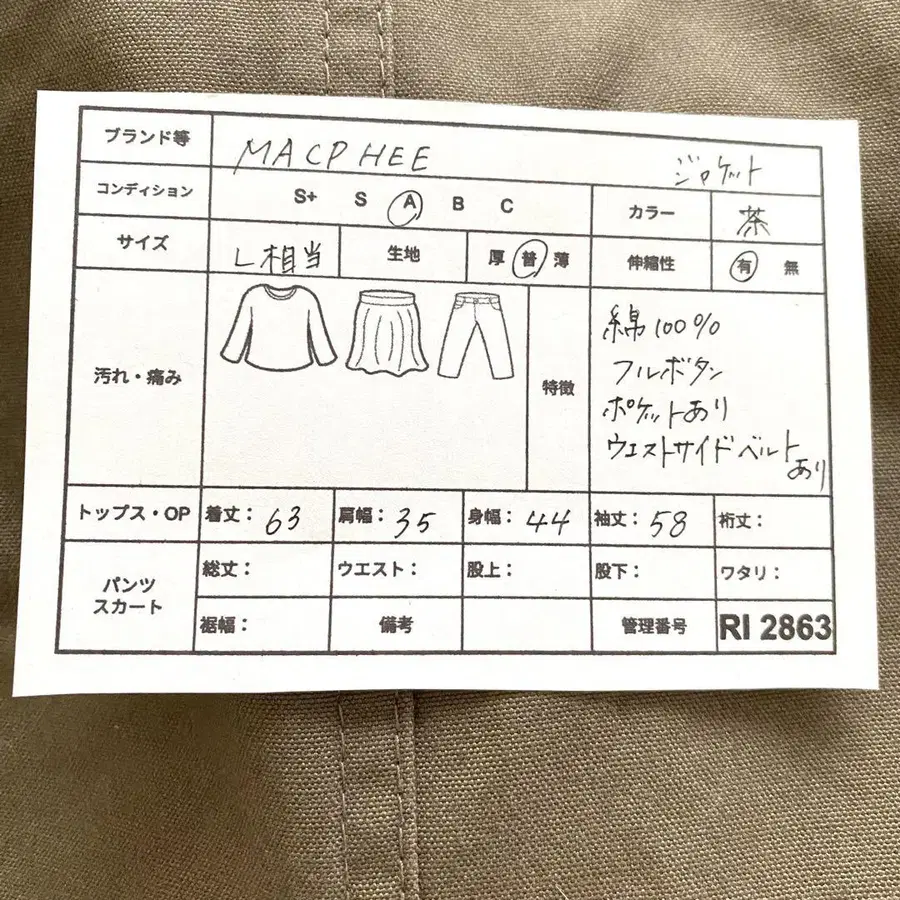 ブランド等 MACPHEE ジャケット
コンディション S+ S A B C カラー 茶
サイズ L相当 生地 厚 普 薄 伸縮性 有 無
汚れ・痛み 特徴
綿100%
フルボタン
ポケットあり
ウエストサイドベルト
あり
トップス・OP 着丈: 63 肩幅: 35 身幅: 44 袖丈: 58 裄丈:
パンツ
スカート
総丈: ウエスト: 股上: 股下: ワタリ:
裾幅: 備考 管理番号 RI 2863